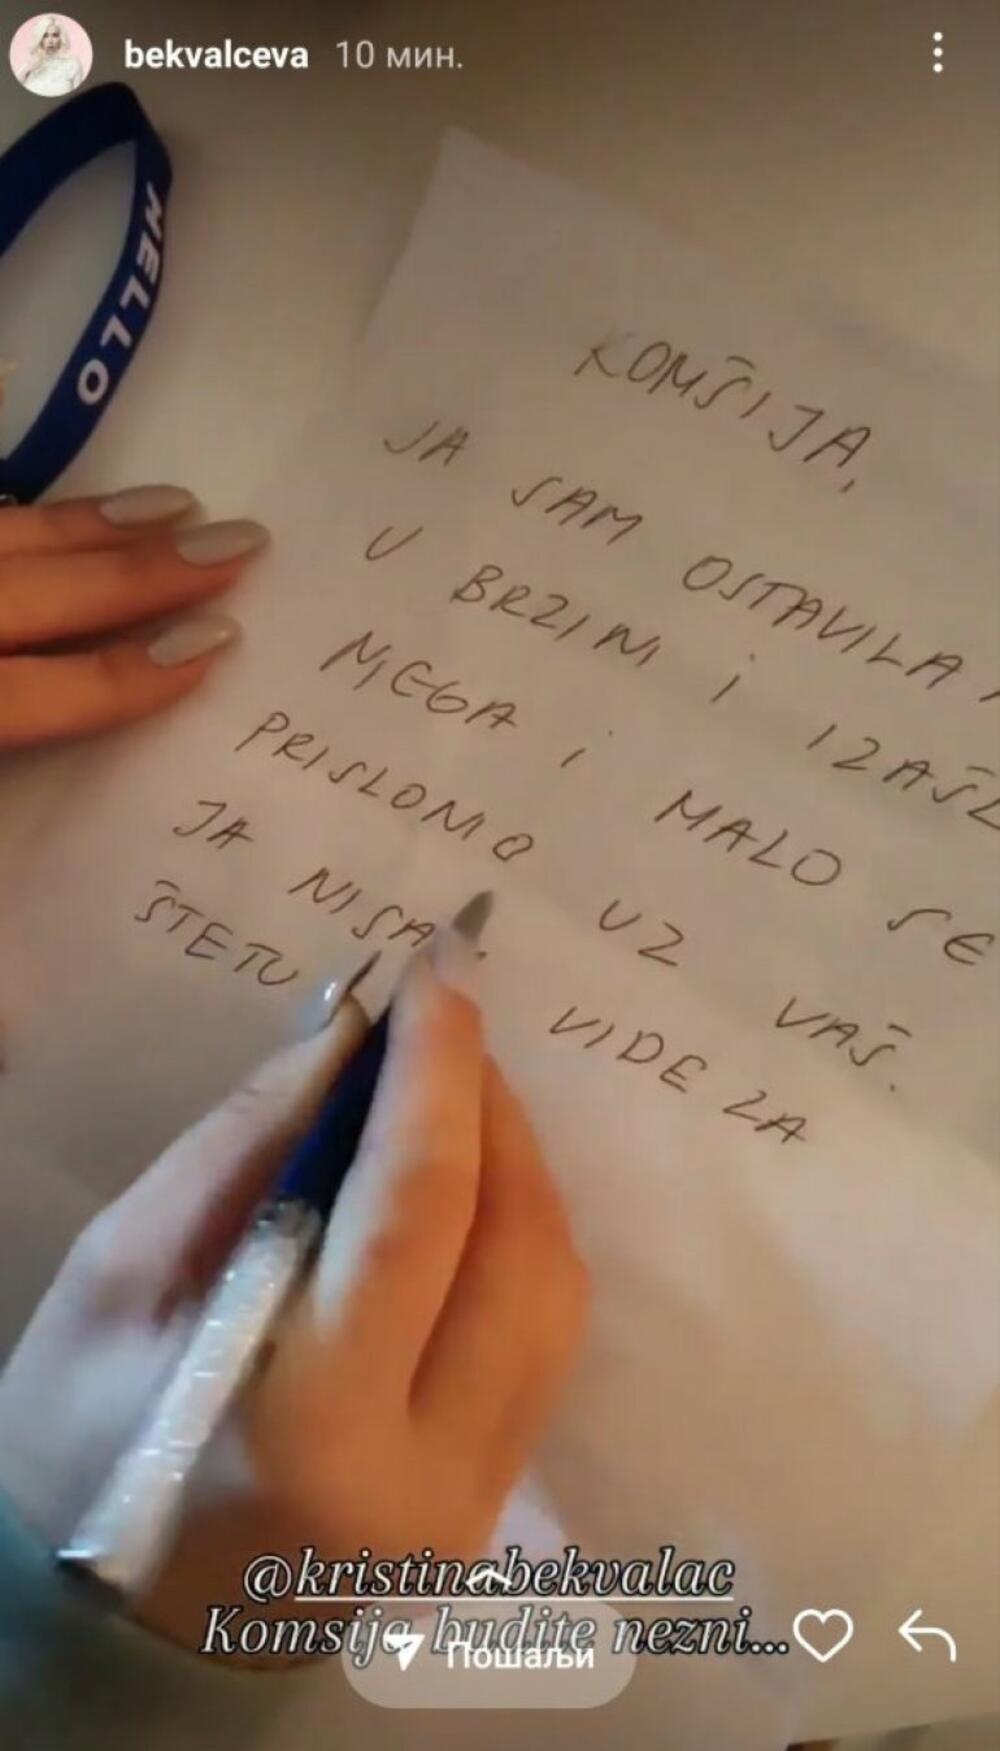 bekvalceva 10 мин.
HELLO
KOMŠIJA,
JA SAM OSTAVILA
U BRZINI i IZAŠL
NJEGA i MALO SE
PRISLONIO UZ VAŠ.
JA VIDE ZA
ŠTETU
@kristinabekvalac
Komsija budite nezni...
Пошаљи